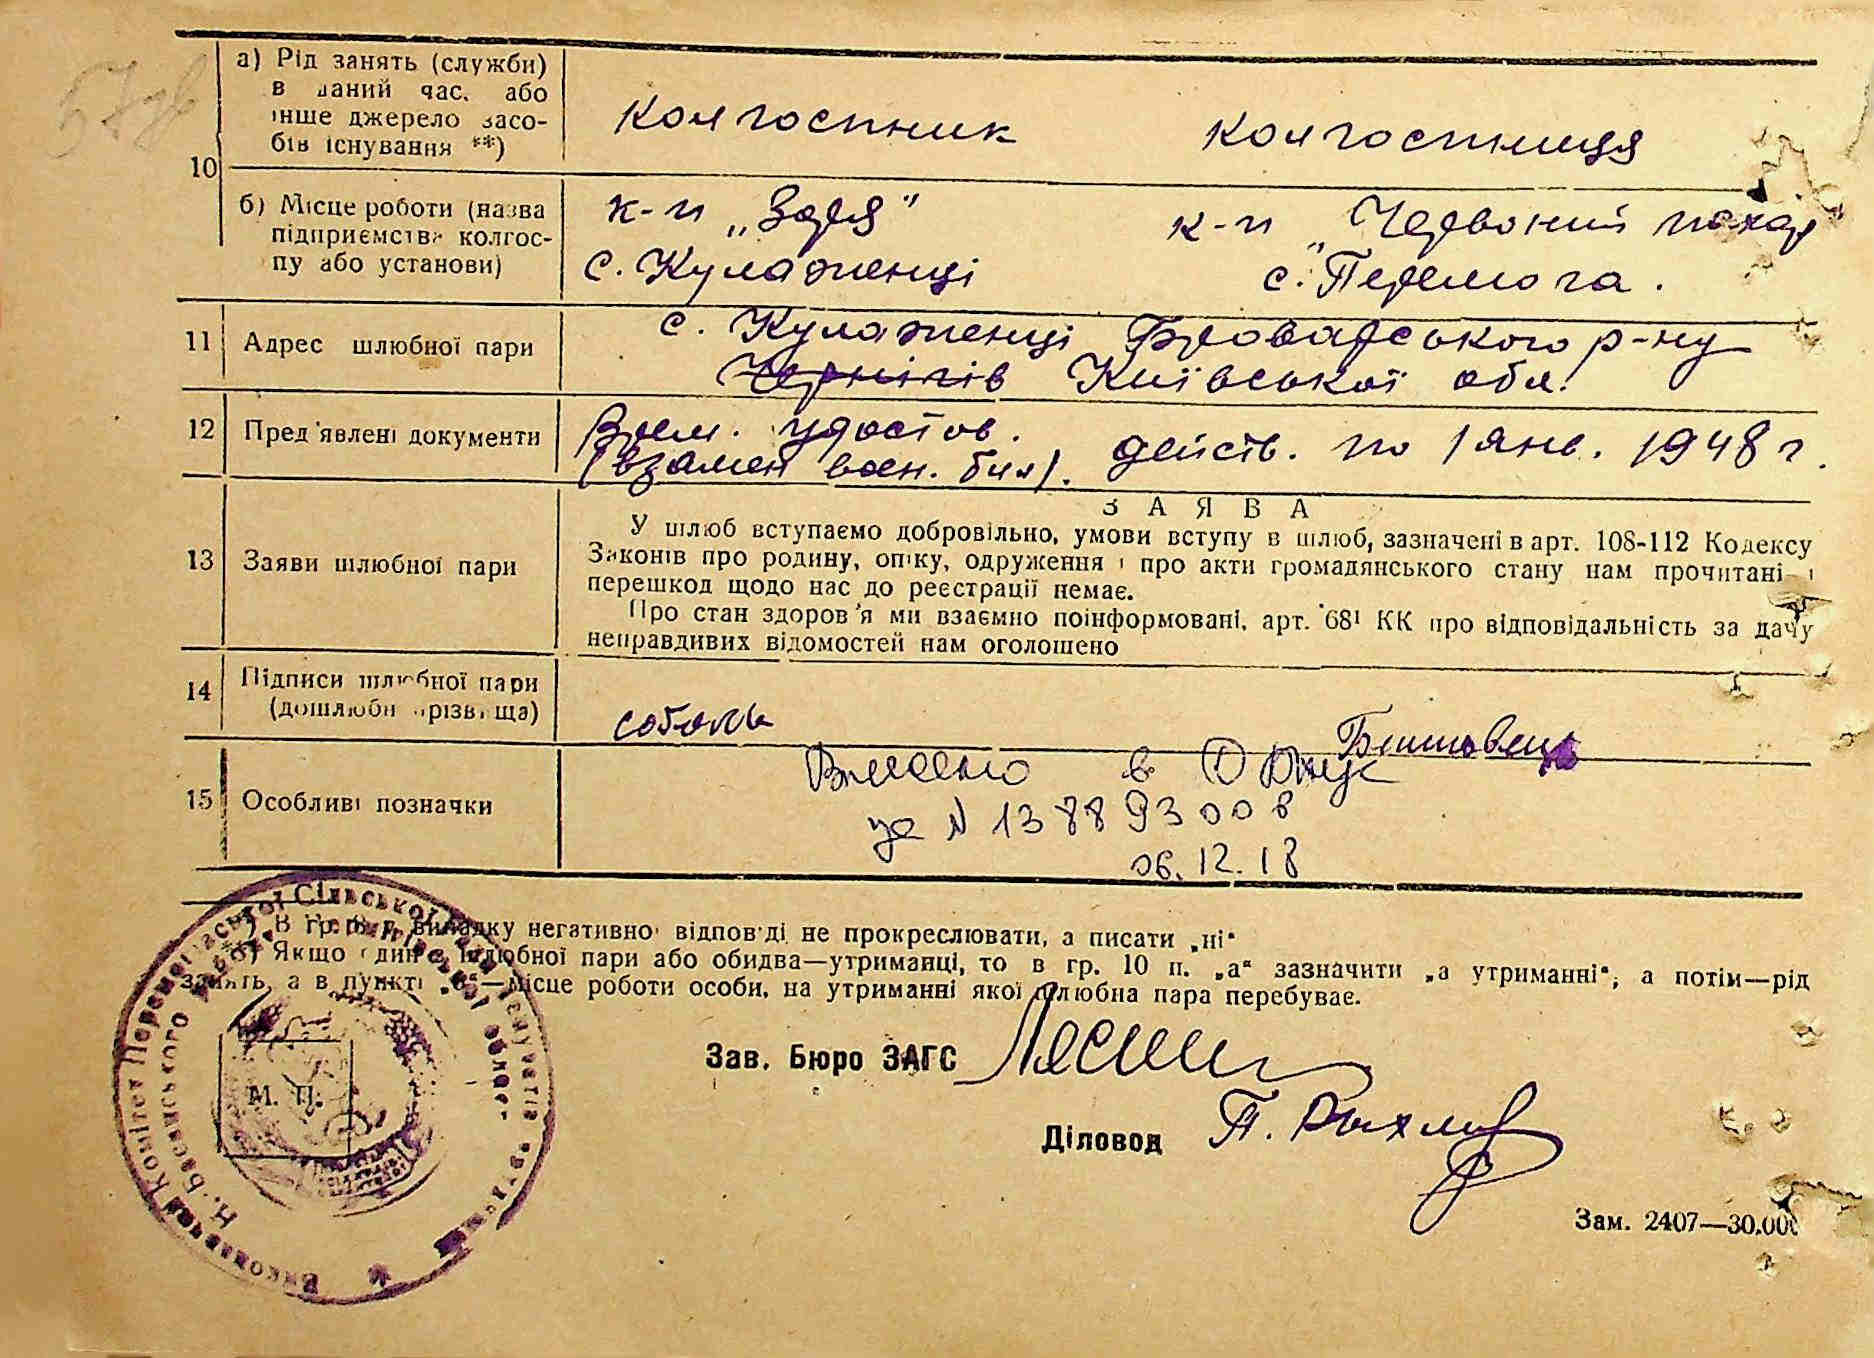 10
а) Рід занять (служби)
в даний час, або
інше джерело засо-
бів існування **)
колгоспник
колгоспниця
б) Місце роботи (назва
підприємства колгос-
пу або установи)
к-п „Заря"
с. Кулаженці
к-п „Червоний пахар
с. Перемога.
11
Адрес шлюбної пари
с. Кулаженці Броварського р-ну
Чернігів Київської обл.
12
Пред'явлені документи
Врем. удостов.
(взамен воен. бил). действ. по 1 янв. 1948 г.
13
Заяви шлюбної пари
ЗАЯВА
У шлюб вступаємо добровільно, умови вступу в шлюб, зазначені в арт. 108-112 Кодексу
Законів про родину, опіку, одруження і про акти громадянського стану нам прочитані і
перешкод щодо нас до реєстрації немає.
Про стан здоров'я ми взаємно поінформовані, арт. 68¹ КК про відповідальність за дачу
неправдивих відомостей нам оголошено
14
Підписи шлюбної пари
(дошлюбні прізвища)
соболь
15
Особливі позначки
Внесено в
за N 138893008
06.12.18
випадку негативної відповіді не прокреслювати, а писати „ні"
Якщо один з шлюбної пари або обидва—утриманці, то в гр. 10 п. „а" зазначити „а утриманні", а потім—рід
занять, а в пункті „б"—місце роботи особи, на утриманні якої шлюбна пара перебуває.
Зав. Бюро ЗАГС
Діловод
М. П.
Зам. 2407—30.000